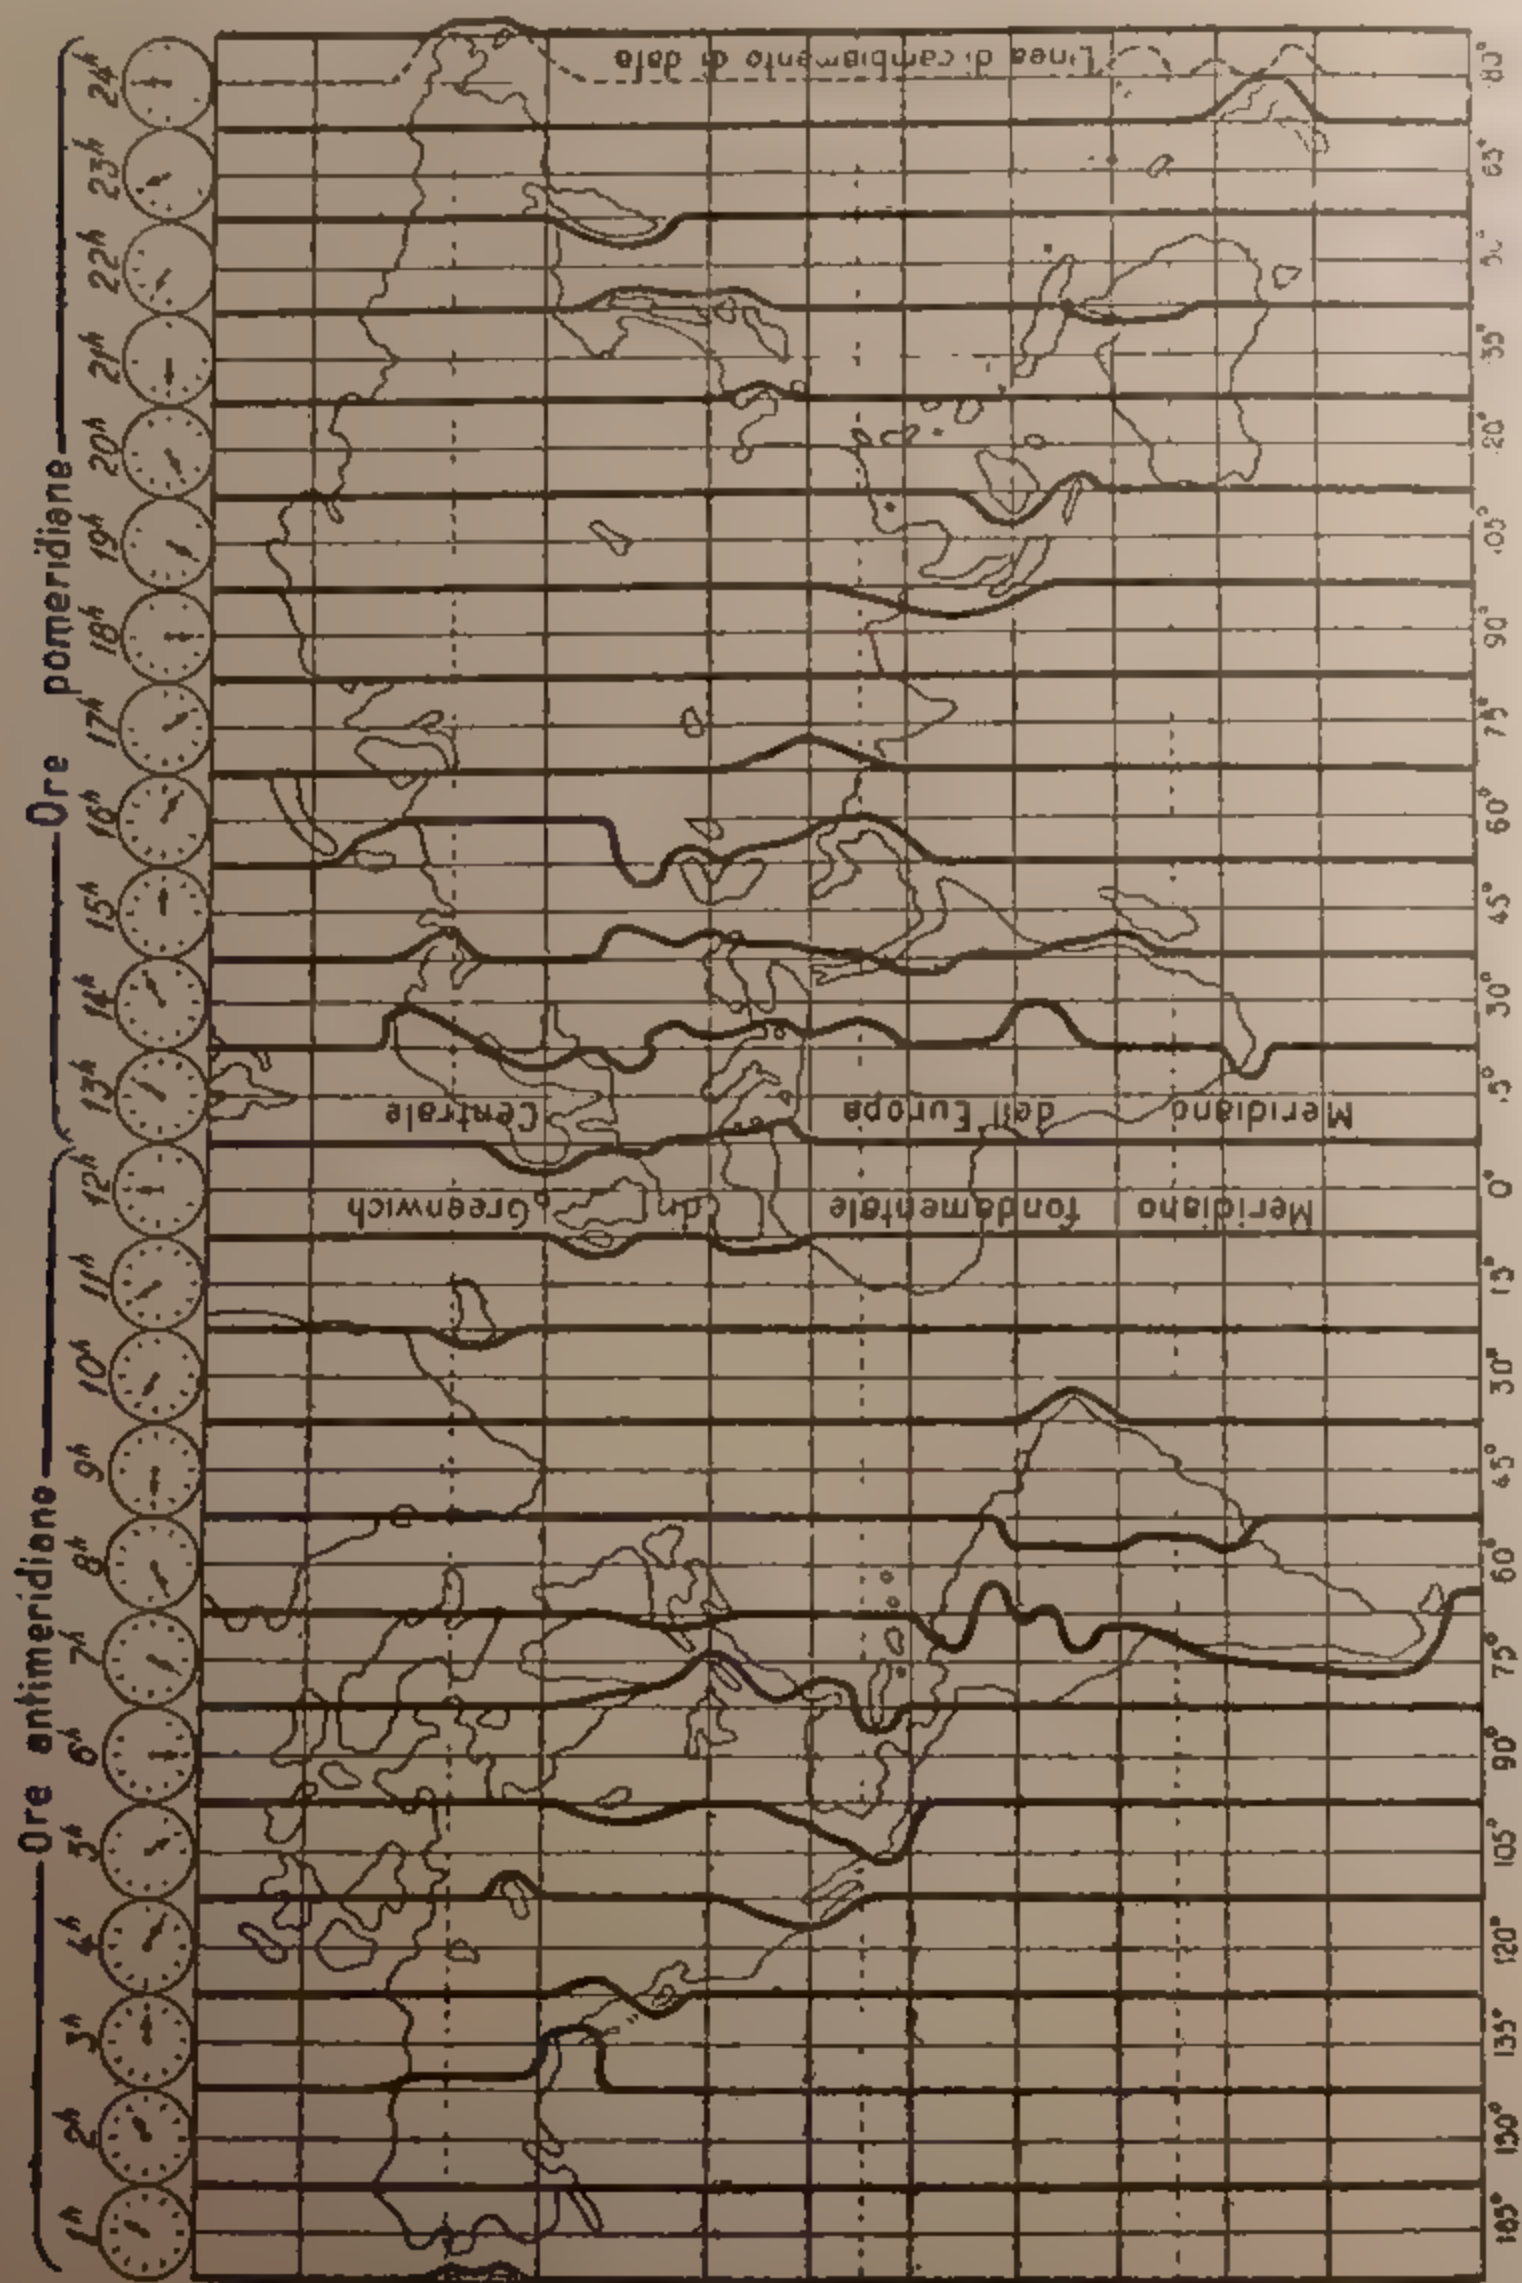 Ore antimeridiane
Ore pomeridiane
1h 2h 3h 4h 5h 6h 7h 8h 9h 10h 11h 12h 13h 14h 15h 16h 17h 18h 19h 20h 21h 22h 23h 24h
Linea di cambiamento di data
Meridiano dell'Europa Centrale
Meridiano fondamentale di Greenwich
165° 150° 135° 120° 105° 90° 75° 60° 45° 30° 15° 0° 15° 30° 45° 60° 75° 90° 105° 120° 135°